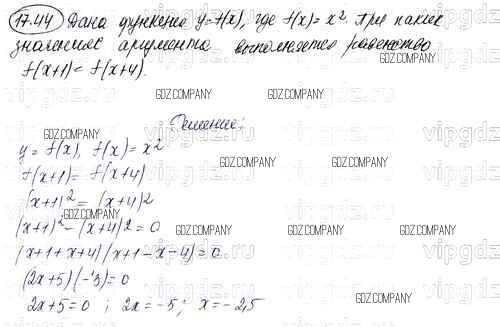 17.44 Дана функция y=f(x), где f(x)=x². При каких
значениях аргумента выполняется равенство
f(x+1)=f(x+4).
GDZ.COMPANY GDZ.COMPANY GDZ.COMPANY
Решение:
GDZ.COMPANY
vipgdz.ru
y=f(x), f(x)=x²
GDZ.COMPANY GDZ.COMPANY
f(x+1)=f(x+4)
(x+1)²=(x+4)²
GDZ.COMPANY
(x+1)²-(x+4)²=0
GDZ.COMPANY GDZ.COMPANY GDZ.COMPANY
(x+1+x+4)(x+1-x-4)=0
(2x+5)(-3)=0
2x+5=0; 2x=-5; x=-2,5
GDZ.COMPANY GDZ.COMPANY